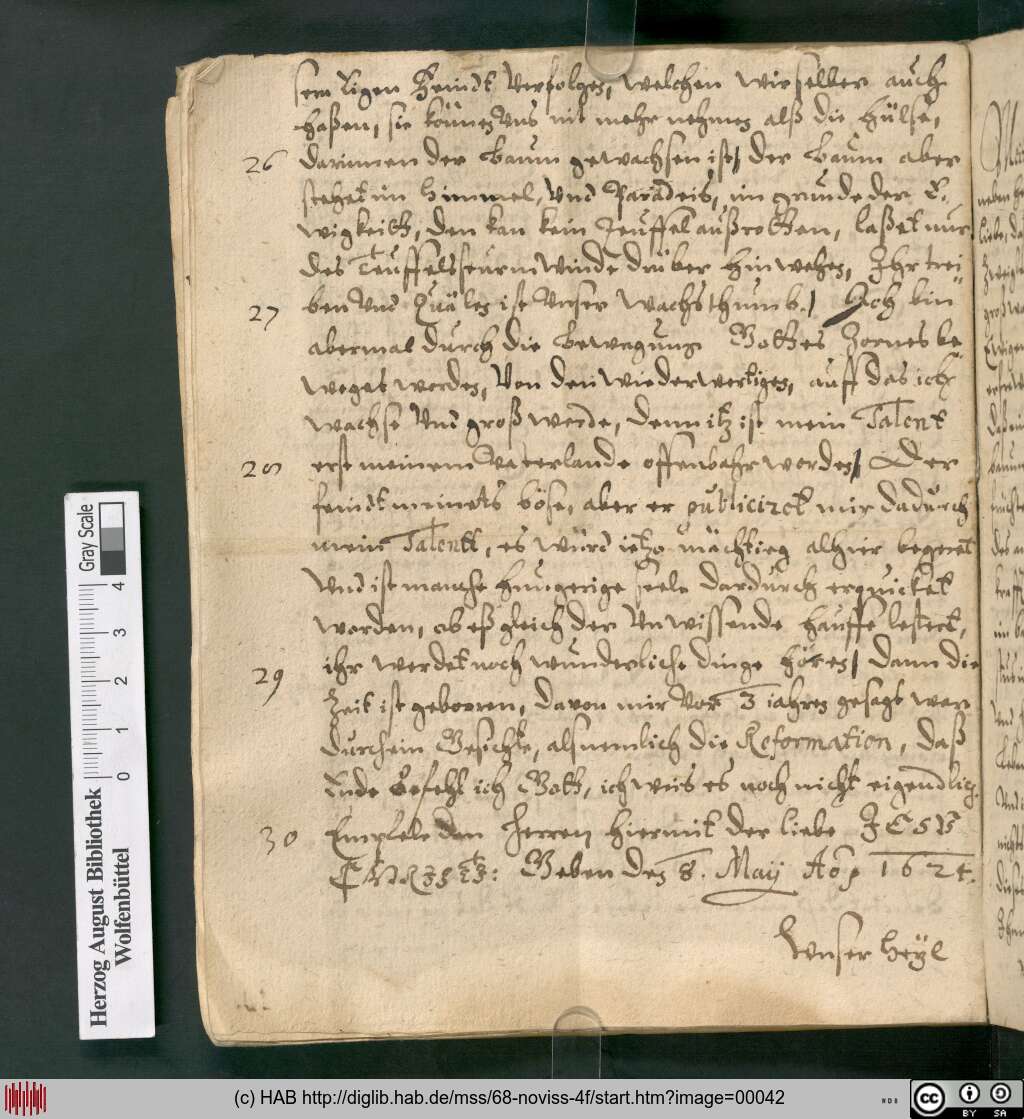 sern Eigen Feindt verfolgen, welchen wir selber auch
haßen, sie können uns nit mehr nehmen alß die hülse,
26 darinnen der Baum gewachsen ist/ der Baum aber
stehet im Himmel, und Paradeis, im grunde der E-
wigkeitt, den kan kein Teuffel außrotten, laßet nur
des Teuffelssturm winde drüber hin wehen, Ihr trei
27 ben und Quälen ist unser wachsthumb./ Ich bin
abermal durch die bewegung Gottes Zornes be
weget worden, von den wiederwertigen, auff das ich
wachse und groß werde, denn itz ist mein Talent
28 erst meinem Vaterlande offenbahr worden/ Der
feindt meinets böse, aber er publiciret mir dadurch
mein Talentt, es würd ietzo mächtieg alhier begeret
und ist manche hungerige seele dardurch erquicket
worden, ob eß gleich der unwissende hauffe lestert,
29 ihr werdet noch wunderliche dinge hören/ dann die
Zeit ist geboren, davon mir vor 3 iahren gesagt war
durch ein Gesichte, als nemlich die Reformation, daß
Ende befehl ich Gott, ich weis es noch nicht eigendlich.
30 Empfele den Herren hiermit der liebe JESU
CHRISTI: Geben den 8. May Aõ 1624.
Unser Heyl
Herzog August Bibliothek
Wolfenbüttel
Gray Scale
0 1 2 3 4
(c) HAB http://diglib.hab.de/mss/68-noviss-4f/start.htm?image=00042
WDB
cc BY SA